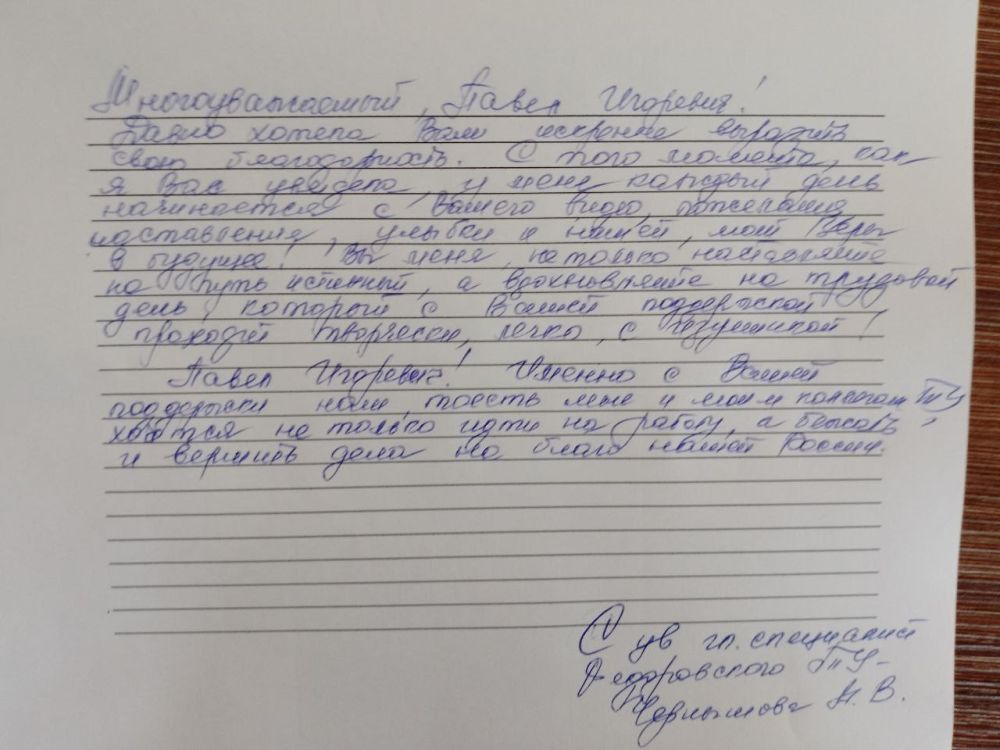 Многоуважаемый, Павел Игоревич!
Давно хотела Вам искренне выразить
свою благодарность. С того момента, как
я Вас увидела, у меня каждый день
начинается с Вашего видео, пожелания
наставления, улыбки и нашей, моей Веры
в будущее! Вы меня, не только наставляете
на путь истинный, а вдохновляете на трудовой
день, который с Вашей поддержкой
проходит творчески, легко, с
Павел Игоревич! Именно с Вашей
поддержки нам, тоесть мне и моим коллегам ТУ
хочется не только идти на работу, а бежать,
и вершить дела на благо нашей России.
С ув гл. специалист
Федоровского ТУ-
Н. В.